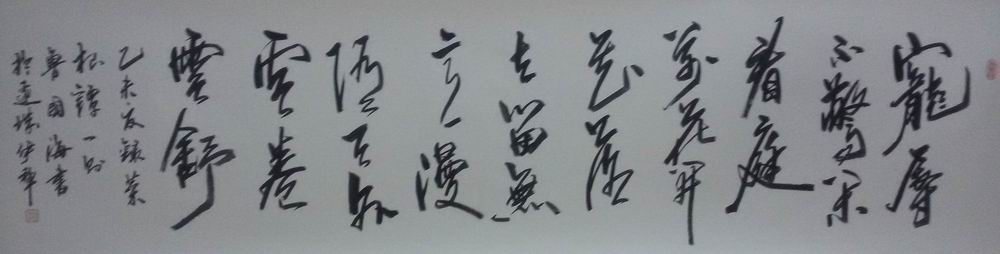 寵辱
不驚閑
看庭
前花開
花落
去留無
意漫
隨天外
雲卷
雲舒
乙未夏錄菜
根譚一則
魯國海書
於